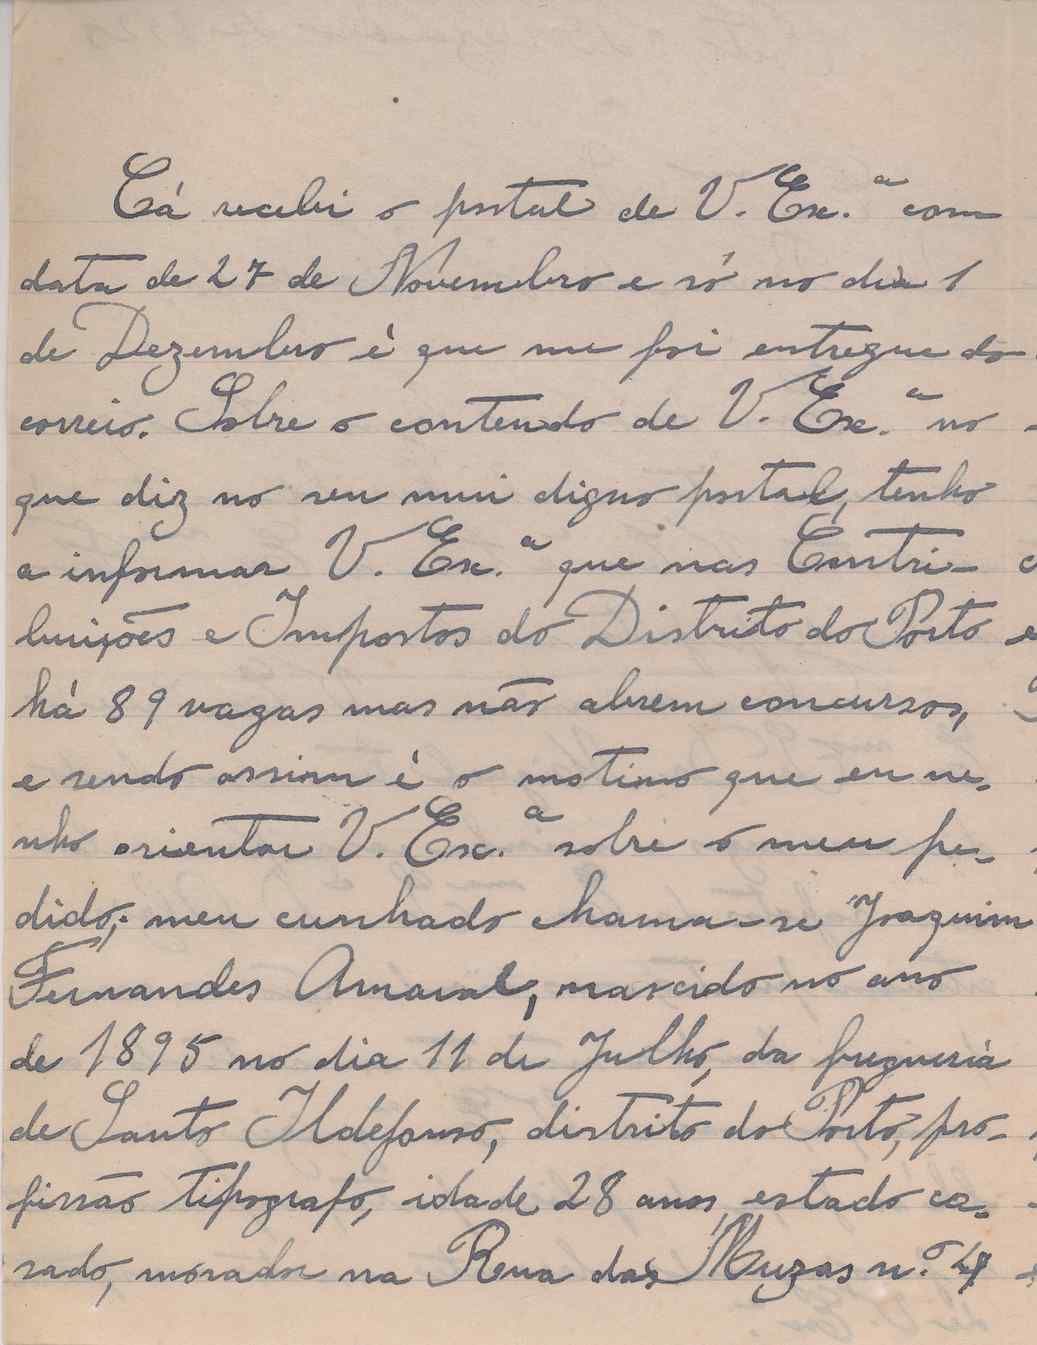 Cá recebi o postal de V. Ex.ª com
data de 27 de Novembro e só no dia 1
de Dezembro é que me foi entregue do
correio. Sobre o contendo de V. Ex.ª no
que diz no seu mui digno postal, tenho
a informar V. Ex.ª que nas Contri-
buições e Impostos do Distrito do Porto
há 89 vagas mas não abrem concursos,
e sendo assim é o motivo que eu ve-
nho orientar V. Ex.ª sobre o meu pe-
dido; meu cunhado chama-se Joaquim
Fernandes Amaral, nascido no ano
de 1895 no dia 11 de Julho, da freguesia
de Santo Ildefonso, distrito do Porto, pro-
fissão tipografo, idade 28 anos, estado ca-
sado, morador na Rua das Muzas n.º